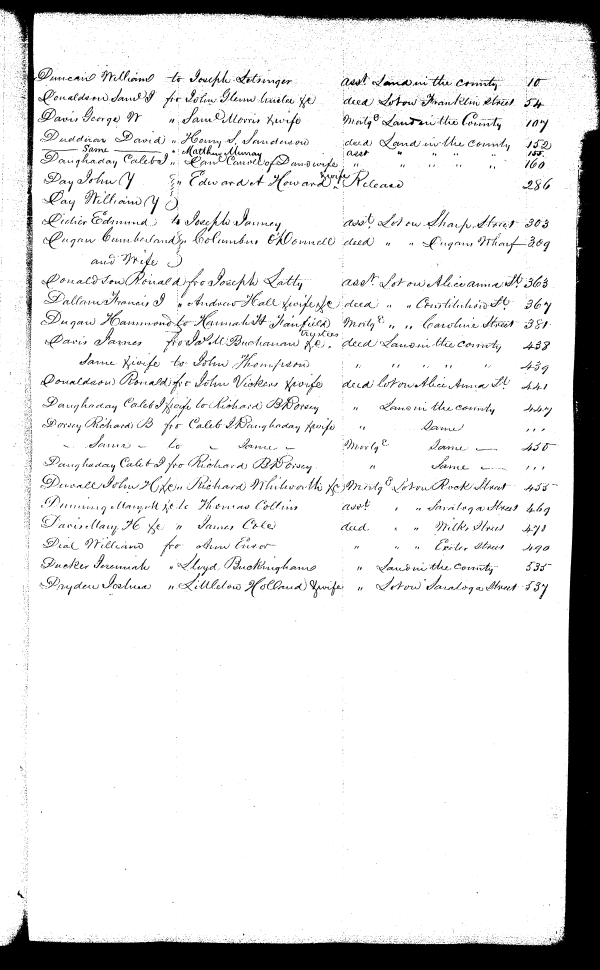 Duncan William to Joseph Lotsinger asst Land in the county 10
Donaldson Saml J fro John Glenn trustee &c deed Lot on Franklin Street 54
Davis George W " Saml Morris & wife Mortge Land in the County 107
Duddinan David " Henry S. Sanderson deed Land in the county 152
Same " Matthew Murray asst " " " " 155
Daughaday Caleb J " Canl Carroll of D and wife " " " " " 160
Day John Y } " Edward A Howard & wife Release 286
Day William Y }
Didier Edmund to Joseph Janney asst Lot on Sharp Street 303
Dugan Cumberland } " Columbus O'Donnell deed " " Dugans Wharf 309
and Wife }
Donaldson Ronald fro Joseph Latty asst Lot on Alice anna St 363
Dallam Francis J " Andrew Hall & wife &c deed " " Constitution St 367
Dugan Hammond to Hannah H Fanfield Mortge " " Caroline Street 381
Davis James fro Js M Buchanan trustee &c. deed Land in the county 438
Same & wife to John Thompson " " " " " 439
Donaldson Ronald fro John Vickers & wife deed Lot on Alice Anna St 441
Daughaday Caleb J & wife to Richard B Dorsey " Land in the county 447
Dorsey Richard B fro Caleb J Daughaday & wife " Same "
" Same " to " Same " Mortge Same 450
Daughaday Caleb J fro Richard B Dorsey " Same "
Duvall John H &c " Richard Whitworth &c Mortge Lot on Rock Street 455
Dunning Margt &c to Thomas Collins asst " " Saratoga Street 469
Davis Mary H &c " James Cole deed " " Wilks Street 471
Dial William fro Ann Ensor " " " Exeter Street 490
Ducker Jeremiah " Lloyd Buckingham " Land in the county 535
Dryden Joshua " Littleton Holland & wife " Lot on Saratoga Street 537